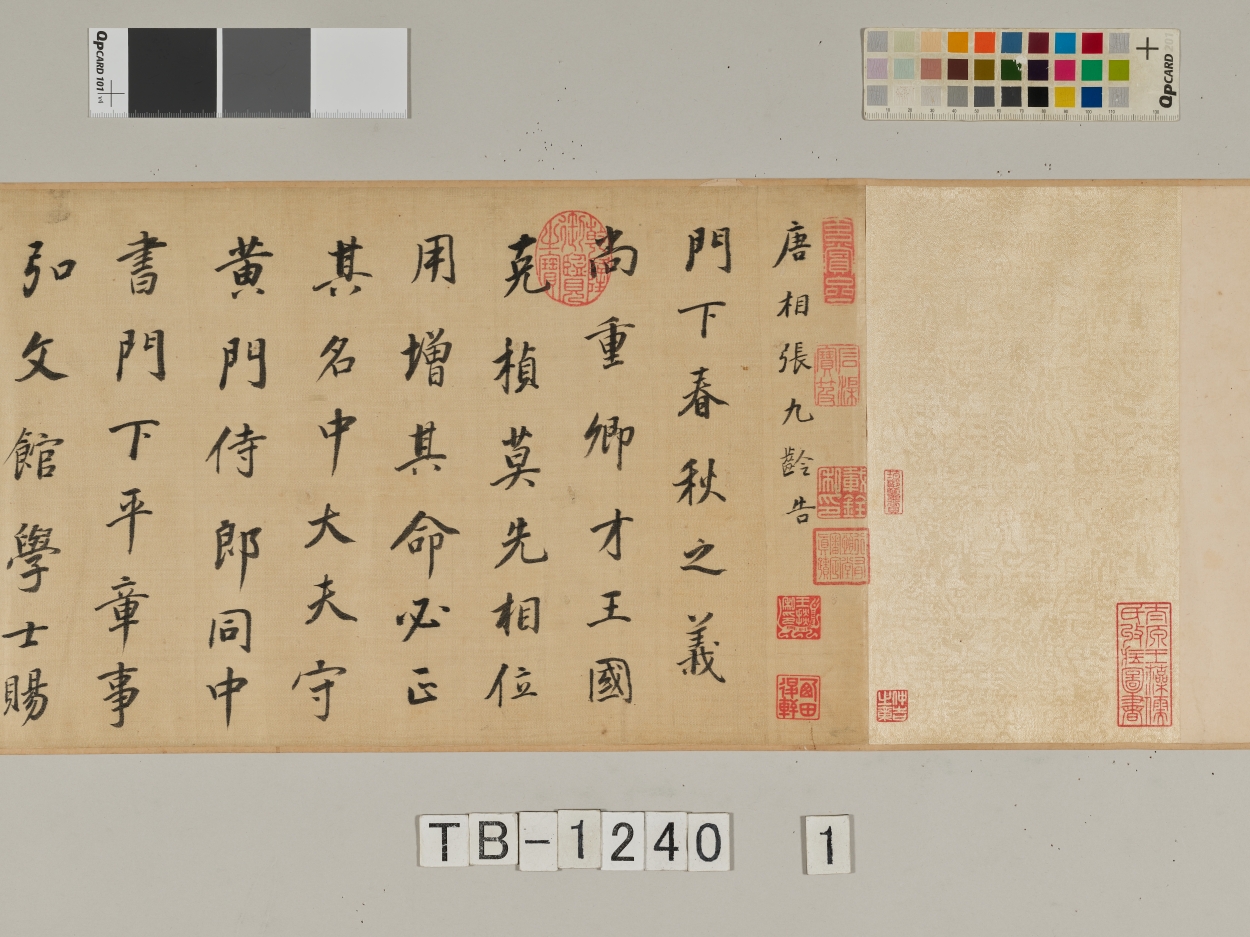 唐相張九齡告
門下春秋之義
尚重卿才王國
克楨莫先相位
用增其命必正
其名中大夫守
黄門侍郎同中
書門下平章事
弘文館學士賜
QPCARD 101 v4
QPCARD 201
TB-1240 1